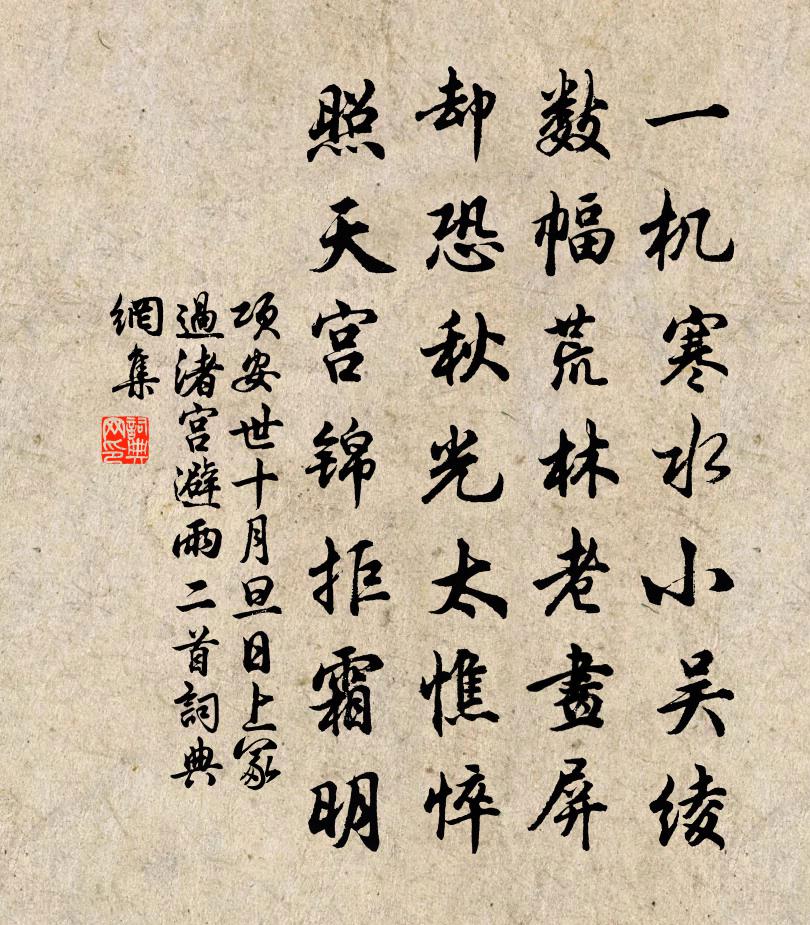 一机寒水小吴绫
数幅荒林老畫屏
却恐秋光太憔悴
照天宫锦拒霜明
项安世十月旦日上冢
過渚宫避雨二首詞典
網集
詞典
网印